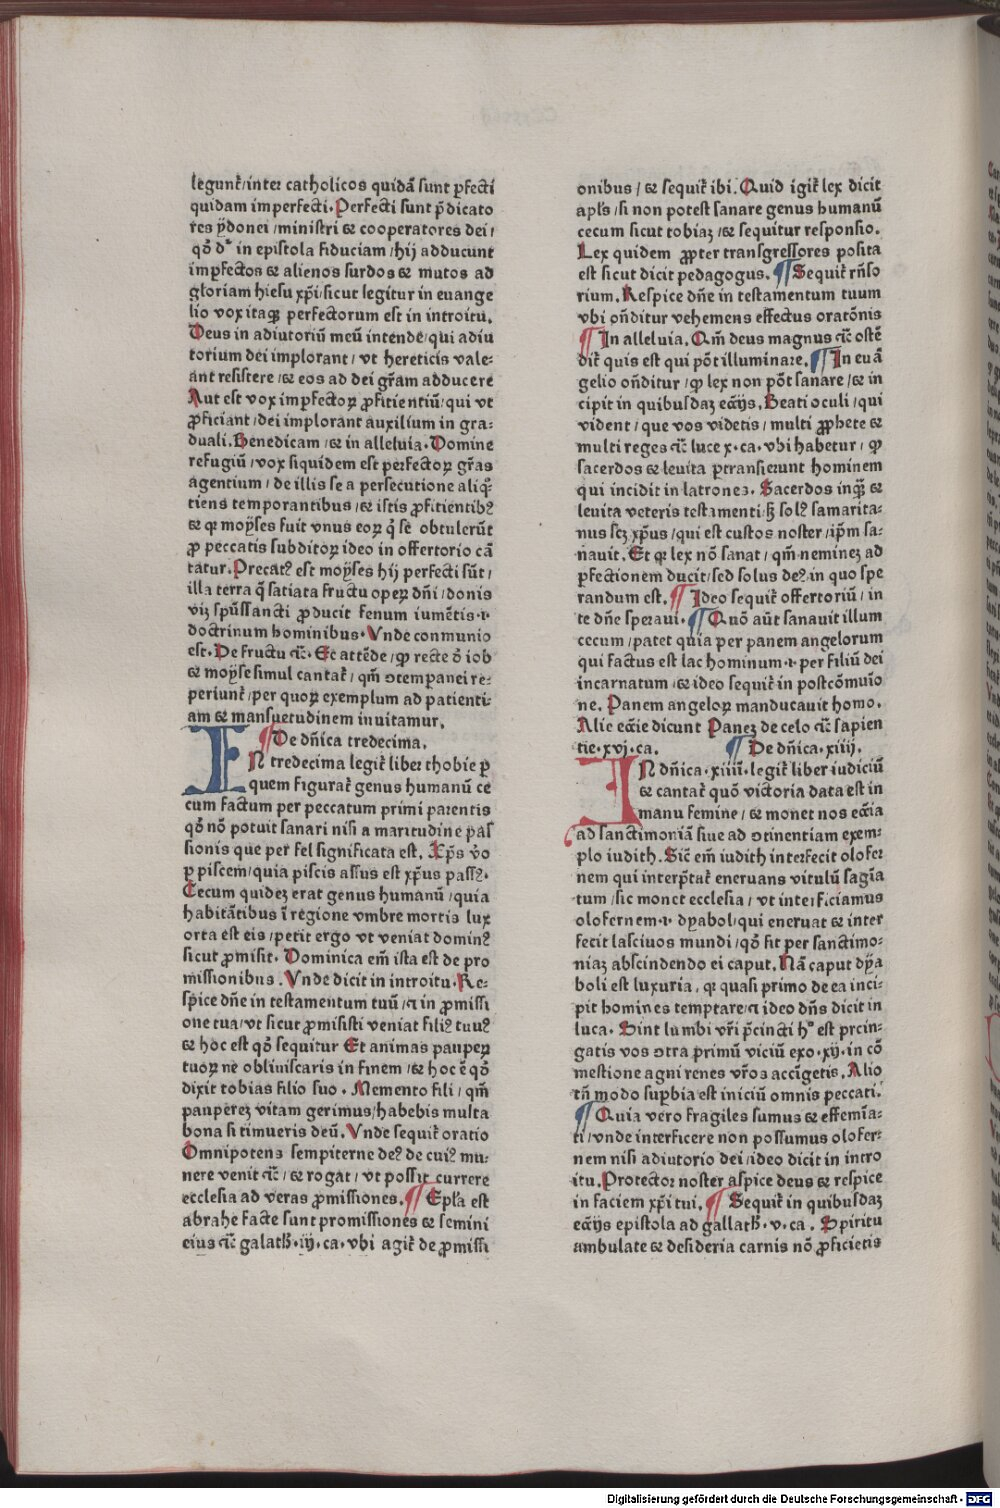 legunt᷑/inter catholicos quidā sunt ꝑfecti
quidam imperfecti.Perfecti sunt p̄dicato
res ydonei/ministri ⁊ cooperatores dei/
qȏ dʳ in epistola fiduciam/hij adducunt
imꝑfectos ⁊ alienos surdos ⁊ mutos ad
gloriam hiesu xp̄i/sicut legitur in euange
lio vox itaqꝫ perfectorum est in introitu.
Deus in adiutoriū meū intende/qui adiu
torium dei implorant/vt hereticis vale⸗
ant resistere/⁊ eos ad dei gr̄am adducere
Aut est vox imꝑfectoꝝ ꝓfitientiū/qui vt
ꝓficiant/dei implorant auxilium in gra⸗
duali.Benedicam/⁊ in alleluia.Domine
refugiū/vox siquidem est perfectoꝝ gr̄as
agentium/de illis se a persecutione aliq̊⸗
tiens temporantibus/⁊ istis ꝓfitientibꝰ
⁊ qꝛ moyses fuit vnus eoꝝ q̄ se obtulerūt
ꝓ peccatis subditoꝝ ideo in offertorio cā
tatur.Precatꝰ est moyses hij perfecti sūt/
illa terra q̄ satiata fructu opeꝝ dn̄i/donis
viꝫ spūssancti ꝓducit fenum iumētis.i.
doctrinum hominibus.Vnde conmunio
est.De fructu ⁊c̄.Et attēde/ꝙ recte ȏ iob
⁊ moyse simul cantat᷑/qm̄ ↄtempanei re⸗
periunt᷑/per quoꝝ exemplum ad patienti⸗
am ⁊ mansuetudinem inuitamur.
¶De dn̄ica tredecima.
IN tredecima legit᷑ liber thobie ꝑ
quem figurat᷑ genus humanū ce
cum factum per peccatum primi parentis
qȏ nȏ potuit sanari nisi a maritudine pas
sionis que per fel significata est. Xp̄s vȏ
ꝑ piscem/quia piscis assus est xp̄us passꝰ.
Cecum quidez erat genus humanū/quia
habitātibus ī regione vmbre mortis lux
orta est eis/petit ergo vt veniat dominꝰ
sicut ꝓmisit. Dominica em̄ ista est de pro
missionibus.Vnde dicit in introitu.Re⸗
spice dn̄e in testamentum tuū/⁊ in ꝓmissi
one tua/vt sicut ꝓmisisti veniat filiꝰ tuuꝰ
⁊ hoc est qȏ sequitur Et animas paupeꝝ
tuoꝝ ne obliuiscaris in finem/⁊ hoc ē qȏ
dixit tobias filio suo.Memento fili/qm̄
pauperez vitam gerimus/habebis multa
bona si timueris deū.Vnde sequit᷑ oratio
Omnipotens sempiterne deꝰ de cuiꝰ mu⸗
nere venit ⁊c̄/⁊ rogat/vt possit currere
ecclesia ad veras ꝓmissiones.¶Epl̄a est
abrahe facte sunt promissiones ⁊ semini
eius ⁊c̄ galath̄.iij.ca.vbi agit᷑ de ꝓmissi
onibus/⁊ sequit᷑ ibi.Quid igit᷑ lex dicit
apl̄s/si non potest sanare genus humanū
cecum sicut tobiaz/⁊ sequitur responsio.
Lex quidem ꝓpter transgressores posita
est sicut dicit pedagogus.¶Sequit᷑ rn̄so
rium.Respice dn̄e in testamentum tuum
vbi on̄ditur vehemens effectus oratōnis
¶In alleluia.Qm̄ deus magnus ⁊c̄ ostē
dit᷑ quis est qui pōt illuminare.¶In euā
gelio on̄ditur/ꝙ lex non pōt sanare/⁊ in
cipit in quibusdaz ecc̄ijs.Beati oculi/qui
vident/que vos videtis/multi ꝓphete ⁊
multi reges ⁊c̄ luce x.ca.vbi habetur/ꝙ
sacerdos ⁊ leuita ꝑtransierunt hominem
qui incidit in latrones.Sacerdos inqꝫ ⁊
leuita veteris testamenti/sꝫ solꝰ samarita⸗
nus sez xp̄us/qui est custos noster/ip̄m sa⸗
nauit.Et qꝛ lex nō sanat/qm̄ neminez ad
ꝑfectionem ducit/sed solus deꝰ in quo spe
randum est.¶Ideo sequit᷑ offertoriū/in
te dn̄e speraui.¶Quō aūt sanauit illum
cecum/patet quia per panem angelorum
qui factus est lac hominum.i.per filiū dei
incarnatum/⁊ ideo sequit᷑ in postcōmuio
ne.Panem angeloꝝ manducauit homo.
Alie ecc̄ie dicunt Panez de celo ⁊c̄ sapien
tie.xvj.ca. ¶De dn̄ica.xiiij.
IN dn̄ica.xiiii.legit᷑ liber iudiciū
⁊ cantat᷑ quō victoria data est in
manu femine/⁊ monet nos ecc̄ia
ad sanctimoniā siue ad ↄtinentiam exem⸗
plo iudith.Sic̄ em̄ iudith interfecit olofer
nem qui interp̄tat᷑ eneruans vitulū sagīa
tum/sic monet ecclesia/vt interficiamus
olofernem.i.dyabol/qui eneruat ⁊ inter
fecit lasciuos mundi/qȏ fit per sanctimo⸗
niaz abscindendo ei caput.Nā caput dya
boli est luxuria,qꝛ quasi primo de ea inci⸗
pit homines temptare/⁊ ideo dn̄s dicit in
luca.Sint lumbi vr̄i p̄cincti hʳ est prcin⸗
gatis vos ↄtra primū viciū exo.xij.in cō
mestione agni renes vr̄os accīgetis.Alio
tn̄ modo supbia est iniciū omnis peccati.
¶Quia vero fragiles sumus ⁊ effemīa⸗
ti/vnde interficere non possumus olofer⸗
nem nisi adiutorio dei/ideo dicit in intro
itu.Protector noster aspice deus ⁊ respice
in faciem xp̄i tui.¶Sequit᷑ in quibusdaz
ecc̄ijs epistola ad gallath̄.v.ca.Spiritu
ambulate ⁊ desideria carnis nō ꝓficietis
Digitalisierung gefördert durch die Deutsche Forschungsgemeinschaft - DFG